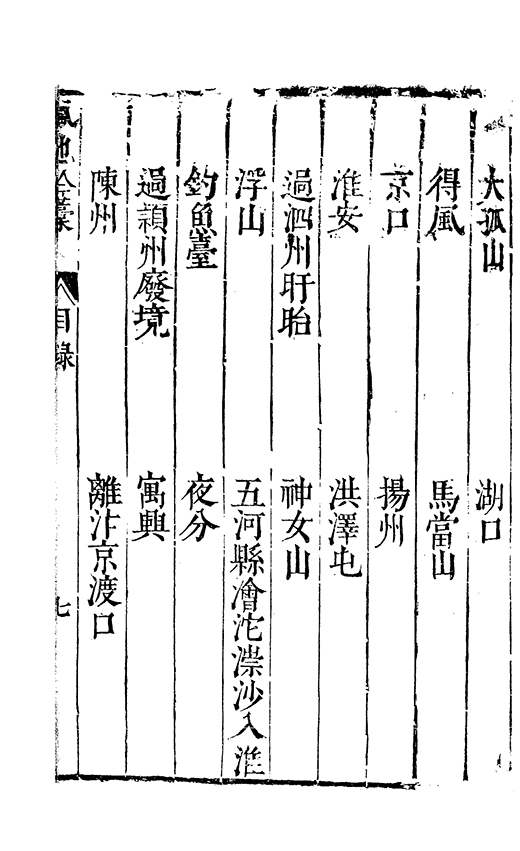 大孤山　湖口
得風　馬當山
京口　揚州
淮安　洪澤屯
過泗州盱眙　神女山
浮山　五河縣澮沱漴沙入淮
釣魚臺　夜分
過潁州廢境　寓興
陳州　離汴京渡口
目錄　七